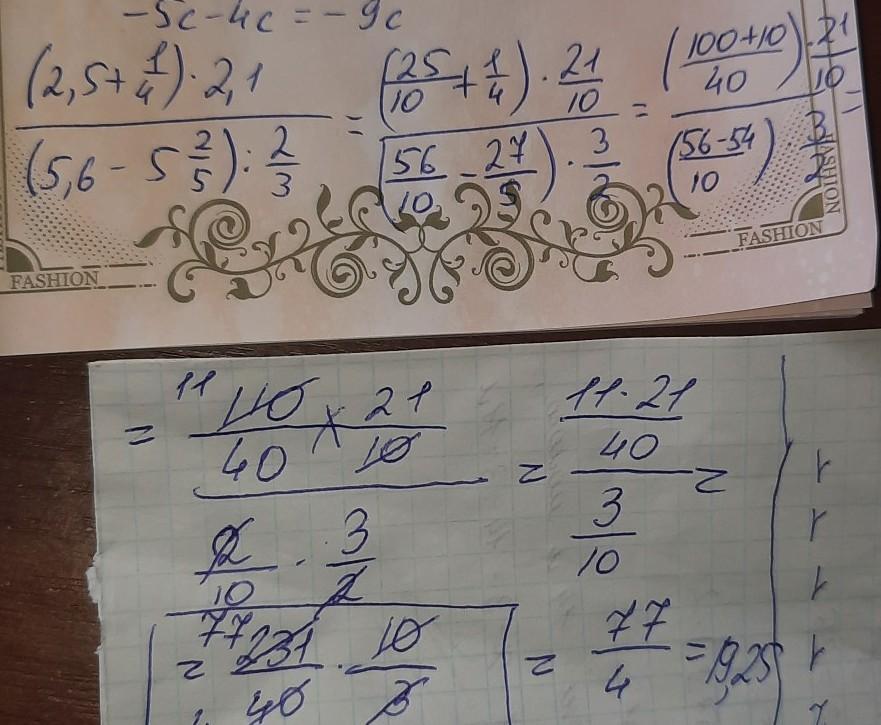 -5c-4c=-9c
(2,5+1/4)·2,1 / (5,6-5 2/5):2/3 = (25/10+1/4)·21/10 / (56/10-27/5)·3/2 = (100+10/40)·21/10 / (56-54/10)·3/2 =
FASHION
FASHION
FASHION
= 11 110/40 × 21/10 / 2/10 · 3/2 = 11·21/40 / 3/10 =
= 77 231/40 · 10/3 = 77/4 = 19,25